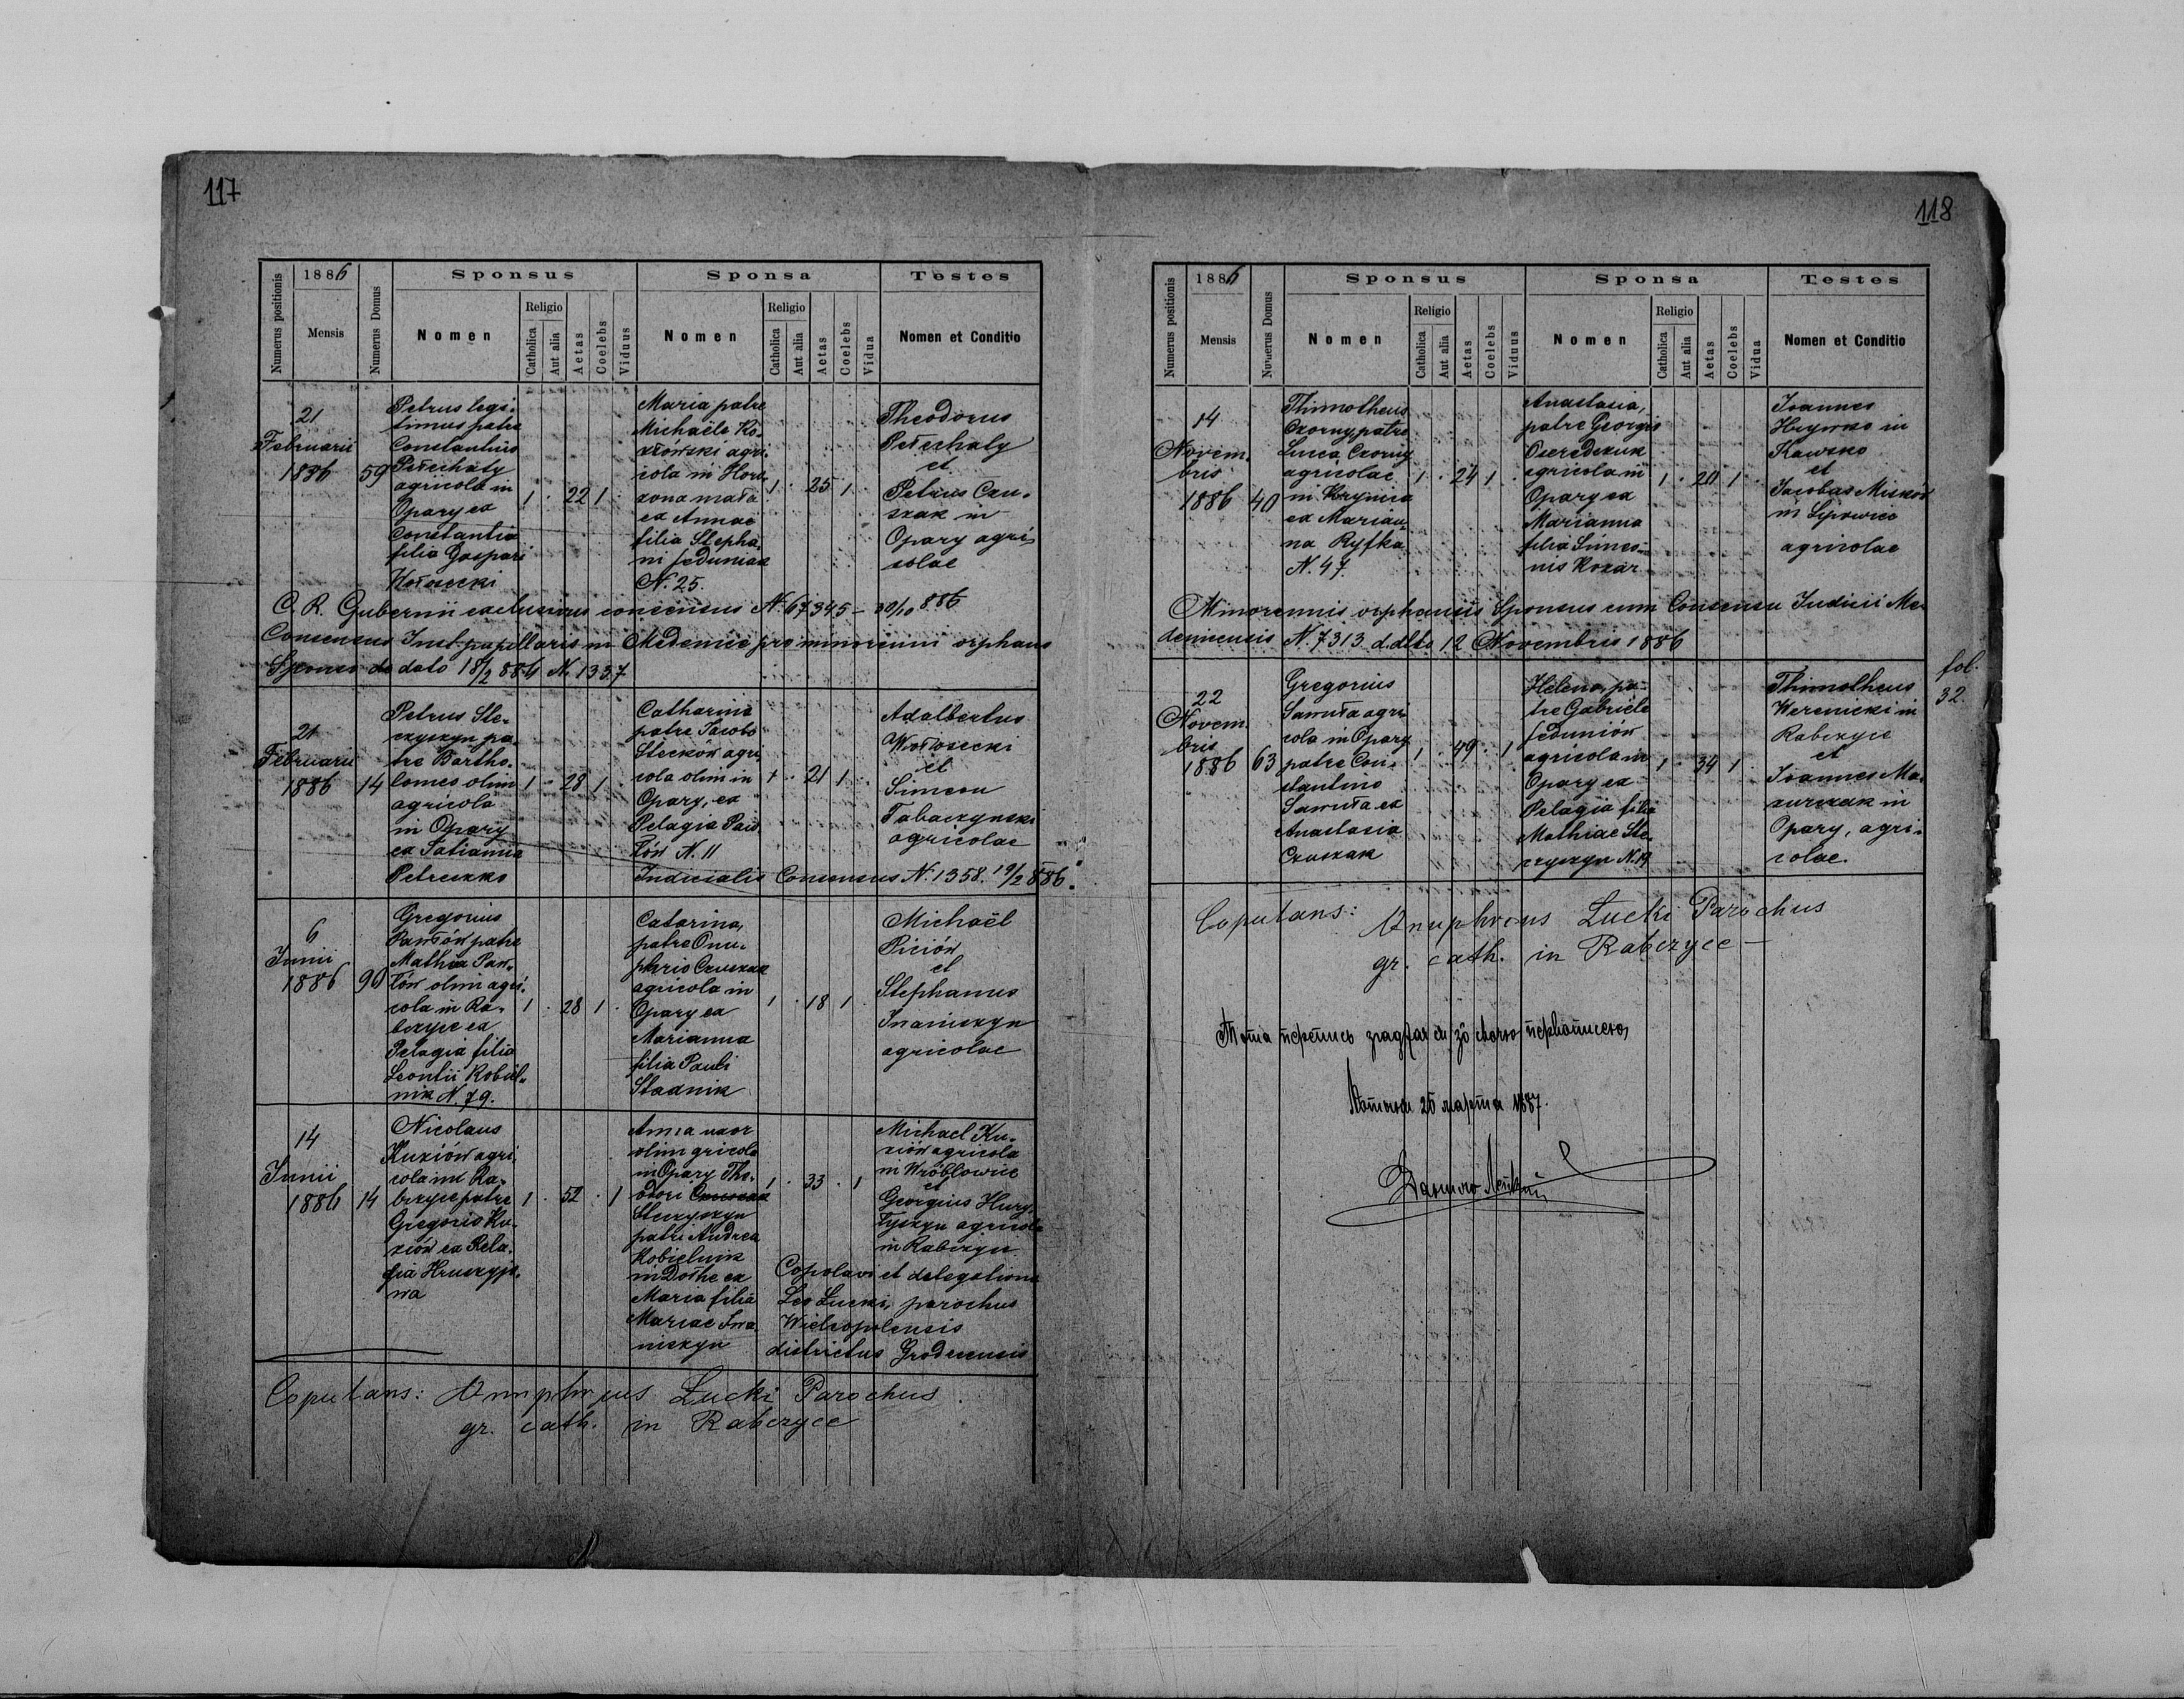 117
Numerus positionis
1886
Mensis
Numerus Domus
Sponsus
Nomen
Religio
Catholica
Aut alia
Aetas
Coelebs
Viduus
Sponsa
Nomen
Religio
Catholica
Aut alia
Aetas
Coelebs
Vidua
Testes
Nomen et Conditio
21
Februarii
1886
59
Petrus legi-
timus patre
Constantino
Petechaty
agricola in
Opary ex
Constantia
filia Gaspari
Wołosecki
1 · 22 1 ·
Maria patre
Michaële Ko-
złówski agri
cola in Horu
ex Annae
filia Stepha
ni Feduniak
N. 25.
1 · 25 1 ·
Theodorus
Petechaty
et
Petrus Czu-
szak in
Opary agri
colae
C. R. Gubernii consensus N. 67345 – 30/10 886
Consensus Inst. pupillaris in Medenice pro minorenni orphano
Sponso de dato 18/2 886 N. 1337
21
Februarii
1886
14
Petrus Ste-
czyszyn pa-
tre Bartho-
lomeo olim
agricola
in Opary
ex Tatianna
Petruszko
1 · 28 1 ·
Catharina
patre Jacobo
Steców agri
cola olim in
Opary, ex
Pelagia Paw
łów N. 11
1 · 21 1 ·
Adalbertus
Wołosecki
et
Simeon
Tabaczynski
agricolae
Judicialis Consensus N. 1358. 19/2 886.
6
Junii
1886
90
Gregorius
Pawłów patre
Mathia Paw-
łów olim agri-
cola in Ra-
bczyce ex
Pelagia filia
Leontii Kobiel-
nik N. 79.
1 · 28 1 ·
Catarina,
patre Onu-
phrio Czuszak
agricola in
Opary ex
Marianna
filia Pauli
Stadnik
1 · 18 1 ·
Michaël
Piciów
et
Stephanus
Iwaniszyn
agricolae
14
Junii
1886
14
Nicolaus
Kuziów agri
cola in Ra-
bczyce patre
Gregorio Ku-
ziów ex Pela-
gia Hruszyjo-
wa
1 · 52 · 1
Anna uxor
olim gricola
in Opary Theo-
odori Czuszak
Steczyszyn
patre Andrea
Kobielnik
in Dołhe ex
Maria filia
Mariae Iwa
niszyn
1 · 33 · 1
Michael Ku-
ziów agricola
in Wróblowice
et
Georgius Hury-
łyszyn agricola
in Rabczyce
Copulavi et delegatione
Leo Łucki, parochus
Wielopolensis
districtus Grodecensis
Copulans: Onuphrius Łucki Parochus
gr. cath. in Rabczyce
118
Numerus positionis
1886
Mensis
Numerus Domus
Sponsus
Nomen
Religio
Catholica
Aut alia
Aetas
Coelebs
Viduus
Sponsa
Nomen
Religio
Catholica
Aut alia
Aetas
Coelebs
Vidua
Testes
Nomen et Conditio
14
Novem
bris
1886
40
Thimotheus
Czorny patre
Luca Czorny
agricolae
in Krynica
ex Marian-
na Ryfka
N. 47.
1 · 24 1 ·
Anastasia,
patre Georgio
Oseredczuk
agricola in
Opary ex
Marianna
filia Simeo-
nis Kozar
1 · 20 1 ·
Joannes
Hrynko in
Kawsko
et
Jacobus Misków
in Lipowiec
agricolae
Minorennis orphanus Sponsus cum Consensu Judicii Me-
denicensis N. 7313 d.dto 12 Novembris 1886
fol.
32.
22
Novem
bris
1886
63
Gregorius
Samuła agri
cola in Opary
patre Con-
stantino
Samuła ex
Anastasia
Czuszak
1 · 49 · 1
Helena, pa-
tre Gabriele
Feduniów
agricola in
Opary ex
Pelagia filia
Mathiae Ste
czyszyn N. 19
1 · 34 1
Thimotheus
Werenicki in
Rabczyce
et
Joannes Ma-
zurczak in
Opary, agri-
colae.
Copulans: Onuphrius Łucki Parochus
gr. cath. in Rabczyce –
25 марта 1887.